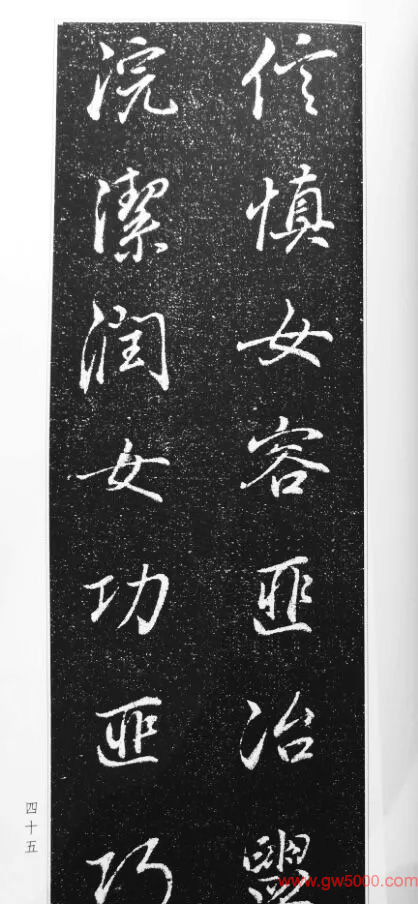 信慎女容匪冶盥
浣潔潤女功匪巧
四十五
www.gw5000.com